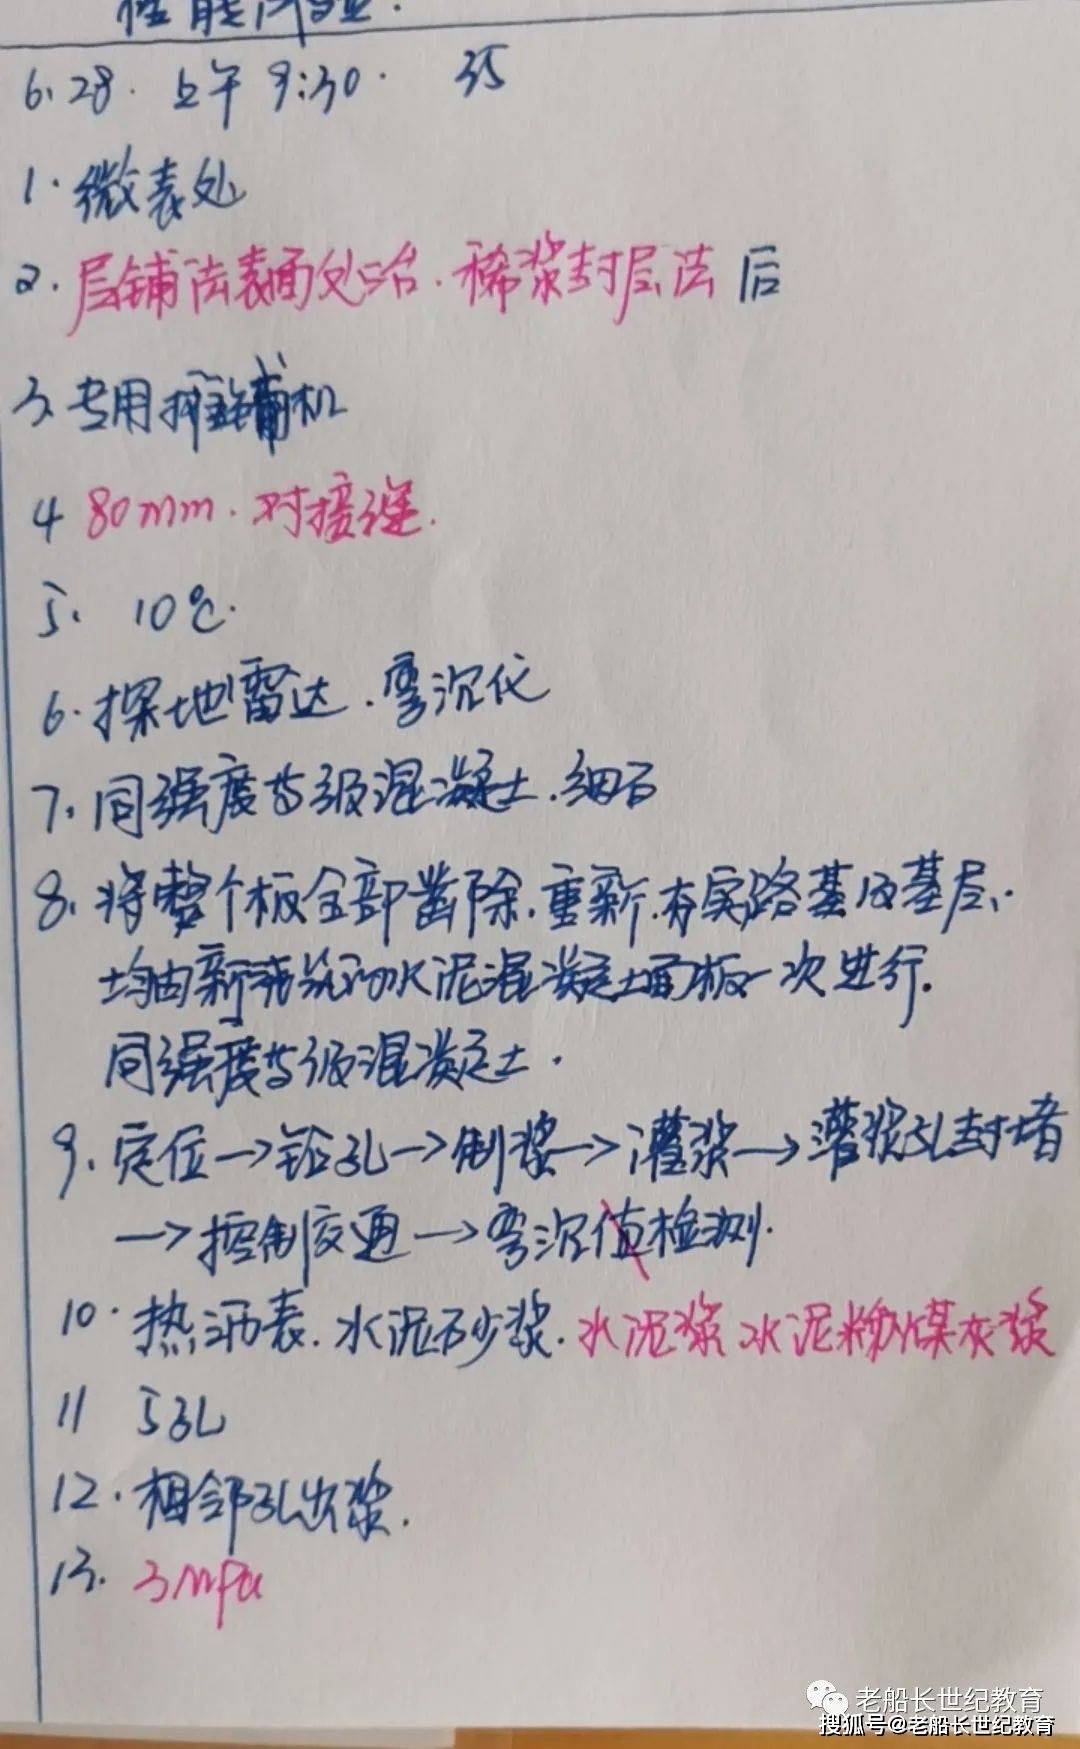 性能
6.28. 上午 9:30. 35
1. 微表处
2. 层铺法表面处治. 稀浆封层法 后
3. 专用摊铺机
4 80mm. 对接缝.
5. 10℃.
6. 探地雷达. 弯沉仪
7. 同强度等级混凝土. 细石
8. 将整个板全部凿除. 重新. 夯实路基及基层.
均由新浇筑的水泥混凝土面板一次进行.
同强度等级混凝土.
9. 定位→钻孔→制浆→灌浆→灌浆孔封堵
→控制交通→弯沉值检测.
10. 热沥表. 水泥砂浆. 水泥浆 水泥粉煤灰浆
11 5孔
12. 相邻孔出浆.
13. 3MPa
老船长世纪教育
搜狐号@老船长世纪教育